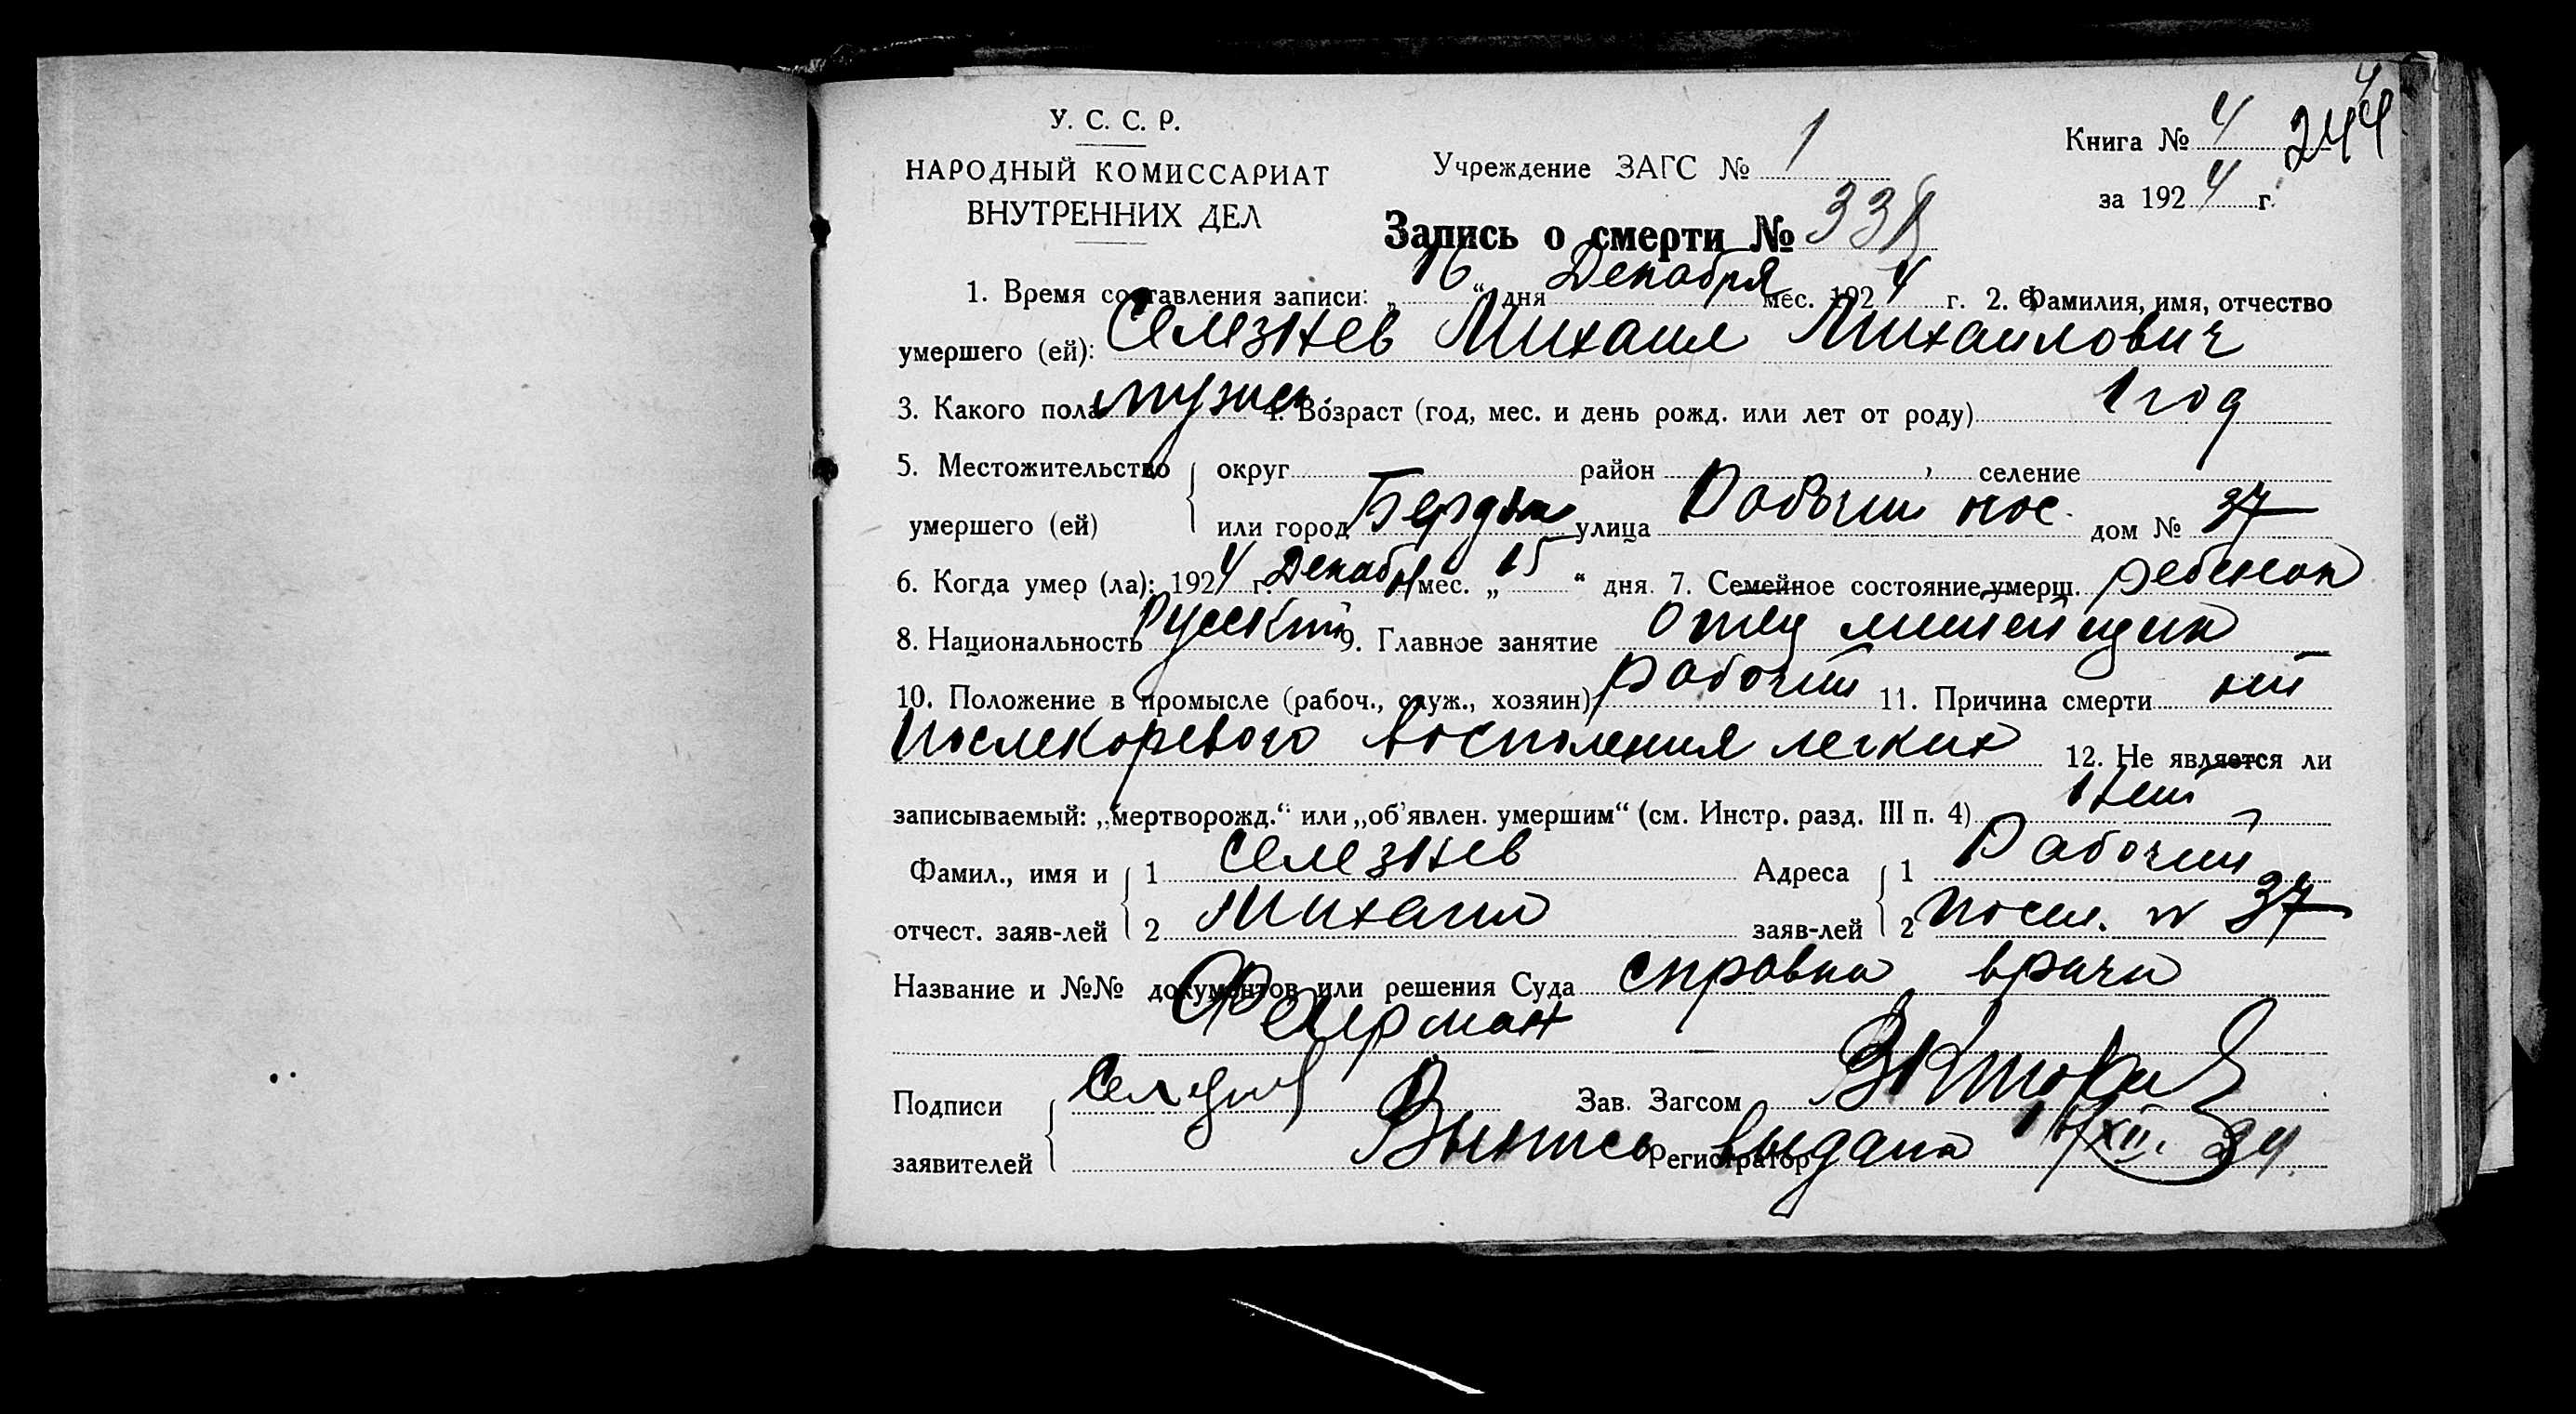 У. С. С. Р.
НАРОДНЫЙ КОМИССАРИАТ
ВНУТРЕННИХ ДЕЛ
Учреждение ЗАГС № 1
Книга № 4 244
за 1924 г.
Запись о смерти № 338
1. Время составления записи: „16“ дня Декабря мес. 1924 г. 2. Фамилия, имя, отчество
умершего (ей): Селезнев Михаил Михаилович
3. Какого пола мужск. 4. Возраст (год, мес. и день рожд. или лет от роду) 1 год
5. Местожительство умершего (ей) округ район селение
или город Бердян улица Рабочий пос. дом № 37
6. Когда умер (ла): 1924 г. Декабря мес. „15“ дня. 7. Семейное состояние умерш. ребенок
8. Национальность Русский 9. Главное занятие отец
10. Положение в промысле (рабоч., служ., хозяин) рабочий 11. Причина смерти от
послекоревого воспаления легких 12. Не является ли
записываемый: „мертворожд.“ или „об'явлен. умершим“ (см. Инстр. разд. III п. 4) нет
Фамил., имя и 1 Селезнев Адреса 1 Рабочий
отчест. заяв-лей 2 Михаил заяв-лей 2 посел. № 37
Название и №№ документов или решения Суда справка врача
Ферман
Подписи Селезнев Зав. Загсом
заявителей Регистратор
Выпись выдана 16/XII. 24.